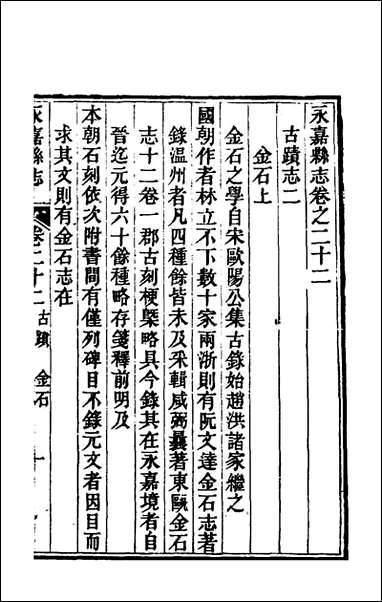 永嘉縣志卷之二十二
古蹟志二
金石上
金石之學自宋歐陽公集古錄始趙洪諸家繼之
國朝作者林立不下數十家兩浙則有阮文達金石志著
錄溫州者凡四種餘皆未及采輯咸弼曩著東甌金石
志十二卷一郡古刻梗槩略具今錄其在永嘉境者自
晉迄元得六十餘種略存箋釋前明及
本朝石刻依次附書間有僅列碑目不錄元文者因目而
求其文則有金石志在
永嘉縣志
卷二十二 古蹟 金石
一